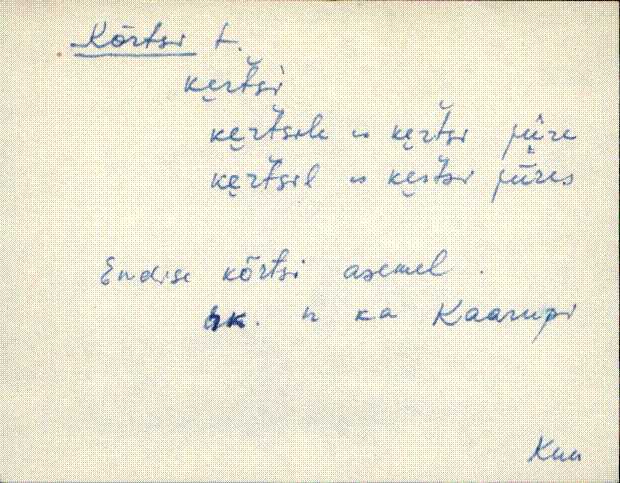 Kõrtsi t.
kẹrt̆si
kẹrt̆sile ~ kẹrt̆si jūre
kẹrt̆sil ~ kẹrt̆si jūres
Endise kõrtsi asemel.
nk. ~ ka Kaarupi
Kuu